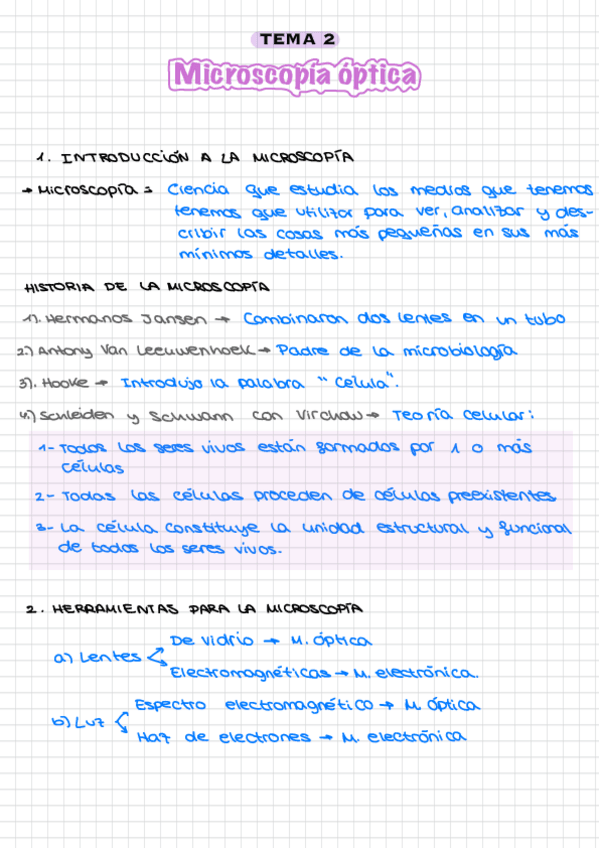 TEMA 2
Microscopía óptica
1. INTRODUCCIÓN A LA MICROSCOPÍA
→ Microscopía = Ciencia que estudia los medios que tenemos
tenemos que utilizar para ver, analizar y des-
cribir las cosas más pequeñas en sus más
mínimos detalles.
HISTORIA DE LA MICROSCOPÍA
1). Hermanos Jansen → Combinaron dos lentes en un tubo
2.) Antony Van Leeuwenhoek → Padre de la microbiología
3). Hooke → Introdujo la palabra "célula".
4.) Schleiden y Schwann con Virchow → Teoría celular:
1- Todos los seres vivos están formados por 1 o más
células
2- Todas las células proceden de células preexistentes
3- La célula constituye la unidad estructural y funcional
de todos los seres vivos.
2. HERRAMIENTAS PARA LA MICROSCOPÍA
De vidrio → M. óptica
a) Lentes
Electromagnéticas → M. electrónica.
Espectro electromagnético → M. óptica
b) Luz
Haz de electrones → M. electrónica